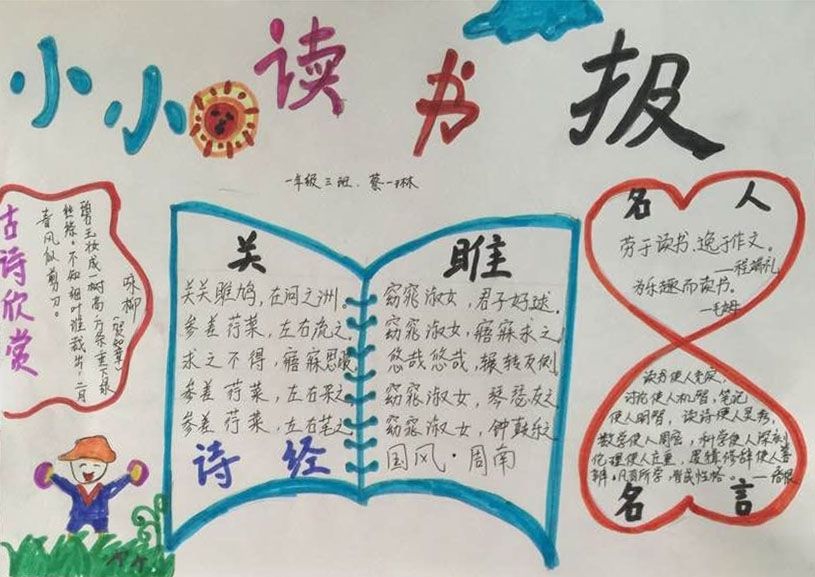 小小读书报
一年级三班、蔡一琳
古诗欣赏
咏柳
(贺知章)
碧玉妆成一树高万条垂下绿
丝绦。不知细叶谁裁出，二月
春风似剪刀。
关雎
关关雎鸠，在河之洲。窈窕淑女，君子好逑。
参差荇菜，左右流之。窈窕淑女，寤寐求之
求之不得，寤寐思服。悠哉悠哉，辗转反侧
参差荇菜，左右采之窈窕淑女，琴瑟友之
参差荇菜，左右芼之窈窕淑女，钟鼓乐之
诗经
国风·周南
名人
劳于读书、逸于作文。
—程端礼
为乐趣而读书。
—毛姆
读书使人充实，
讨论使人机智，笔记
使人明智，读诗使人灵秀，
数学使人周密，科学使人深刻
伦理使人庄重，逻辑修辞使人善
辩。凡有所学，皆成性格。—培根
名言